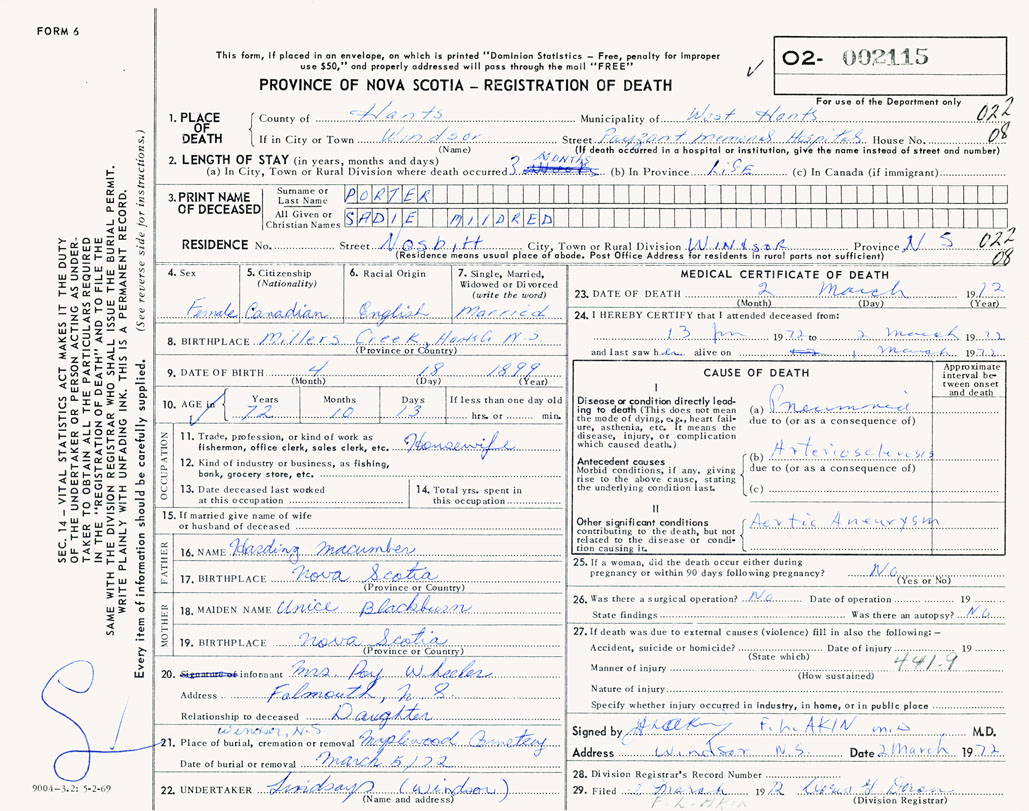 FORM 6
This form, if placed in an envelope, on which is printed "Dominion Statistics – Free, penalty for improper
use $50," and properly addressed will pass through the mail "FREE"
PROVINCE OF NOVA SCOTIA – REGISTRATION OF DEATH
O2- 002115
For use of the Department only
022
08
1. PLACE OF DEATH
County of Hants Municipality of West Hants
If in City or Town Windsor Street Payzant Memorial Hospital House No.
(Name) (If death occurred in a hospital or institution, give the name instead of street and number)
2. LENGTH OF STAY (in years, months and days)
(a) In City, Town or Rural Division where death occurred 3 MONTHS (b) In Province LIFE (c) In Canada (if immigrant)
3. PRINT NAME OF DECEASED
Surname or Last Name PORTER
All Given or Christian Names SADIE MILDRED
RESIDENCE No. Street Nesbitt City, Town or Rural Division WINDSOR Province N S 022
(Residence means usual place of abode. Post Office Address for residents in rural parts not sufficient) 08
4. Sex Female
5. Citizenship (Nationality) Canadian
6. Racial Origin English
7. Single, Married, Widowed or Divorced (write the word) Married
8. BIRTHPLACE Millers Creek, Hants Co N.S
(Province or Country)
9. DATE OF BIRTH 4 18 1899
(Month) (Day) (Year)
10. AGE in Years 72 Months 10 Days 13 If less than one day old hrs. or min.
OCCUPATION
11. Trade, profession, or kind of work as fisherman, office clerk, sales clerk, etc. Housewife
12. Kind of industry or business, as fishing, bank, grocery store, etc.
13. Date deceased last worked at this occupation
14. Total yrs. spent in this occupation
15. If married give name of wife
or husband of deceased
FATHER
16. NAME Harding Macumber
17. BIRTHPLACE Nova Scotia
(Province or Country)
MOTHER
18. MAIDEN NAME Unice Blackburn
19. BIRTHPLACE Nova Scotia
(Province or Country)
20. Signature of informant Mrs Roy Wheeler
Address Falmouth, N.S.
Relationship to deceased Daughter
Windsor, N.S
21. Place of burial, cremation or removal Maplewood Cemetery
Date of burial or removal March 5/72
22. UNDERTAKER Lindsays (Windsor)
(Name and address)
MEDICAL CERTIFICATE OF DEATH
23. DATE OF DEATH 2 March 1972
(Month) (Day) (Year)
24. I HEREBY CERTIFY that I attended deceased from:
13 Jan 1972 to 2 March 1972
and last saw her alive on 1 March 1972
CAUSE OF DEATH
Approximate interval between onset and death
I
Disease or condition directly leading to death (This does not mean the mode of dying, e.g., heart failure, asthenia, etc. It means the disease, injury, or complication which caused death.)
(a) Pneumonia
due to (or as a consequence of)
Antecedent causes
Morbid conditions, if any, giving rise to the above cause, stating the underlying condition last.
(b) Arteriosclerosis
due to (or as a consequence of)
(c)
II
Other significant conditions contributing to the death, but not related to the disease or condition causing it.
Aortic Aneurysm
25. If a woman, did the death occur either during
pregnancy or within 90 days following pregnancy? No
(Yes or No)
26. Was there a surgical operation? No Date of operation 19
State findings Was there an autopsy? No
27. If death was due to external causes (violence) fill in also the following: –
Accident, suicide or homicide? Date of injury 19
(State which)
441.9
Manner of injury
(How sustained)
Nature of injury
Specify whether injury occurred in industry, in home, or in public place
Signed by F. L. AKIN M.D M.D.
Address Windsor N.S. Date 2 March 1972
28. Division Registrar's Record Number
29. Filed 2 March 1972
F. L. AKIN (Division Registrar)
SEC. 14 – VITAL STATISTICS ACT MAKES IT THE DUTY
OF THE UNDERTAKER OR PERSON ACTING AS UNDER-
TAKER TO OBTAIN ALL THE PARTICULARS REQUIRED
IN THE "REGISTRATION OF DEATH" AND TO FILE THE
SAME WITH THE DIVISION REGISTRAR WHO SHALL ISSUE THE BURIAL PERMIT.
WRITE PLAINLY WITH UNFADING INK. THIS IS A PERMANENT RECORD.
Every item of information should be carefully supplied. (See reverse side for instructions.)
9004-3.2: 5-2-69